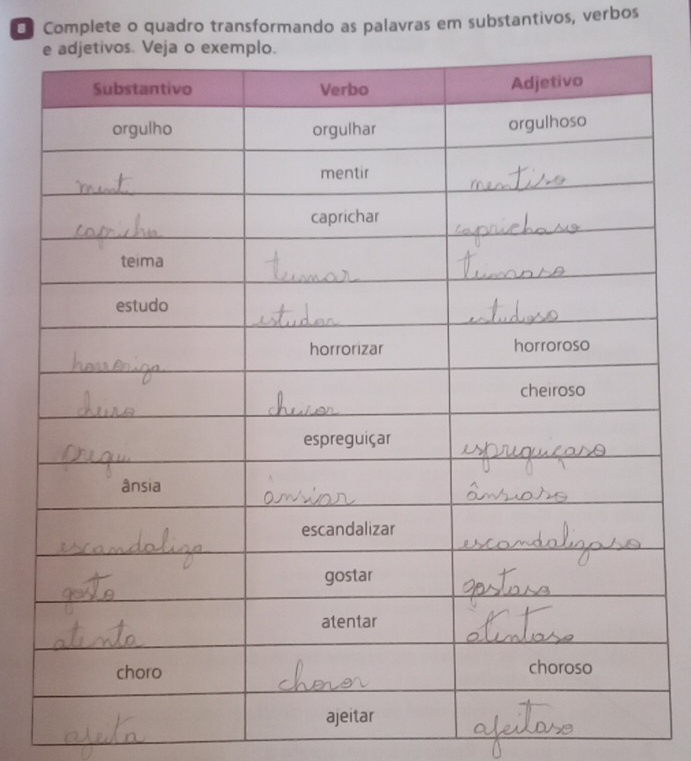 8 Complete o quadro transformando as palavras em substantivos, verbos
e adjetivos. Veja o exemplo.
Substantivo Verbo Adjetivo
orgulho orgulhar orgulhoso
menti mentir mentiroso
capricha caprichar caprichoso
teima teimar teimoso
estudo estudar estudoso
horroriza horrorizar horroroso
cheiro cheirar cheiroso
pregui espreguiçar espreguiçoso
ânsia ânsiar ânsioso
escandaliza escandalizar escandalizoso
gosto gostar gostoso
atenta atentar atentoso
choro chorar choroso
ajeita ajeitar ajeitoso